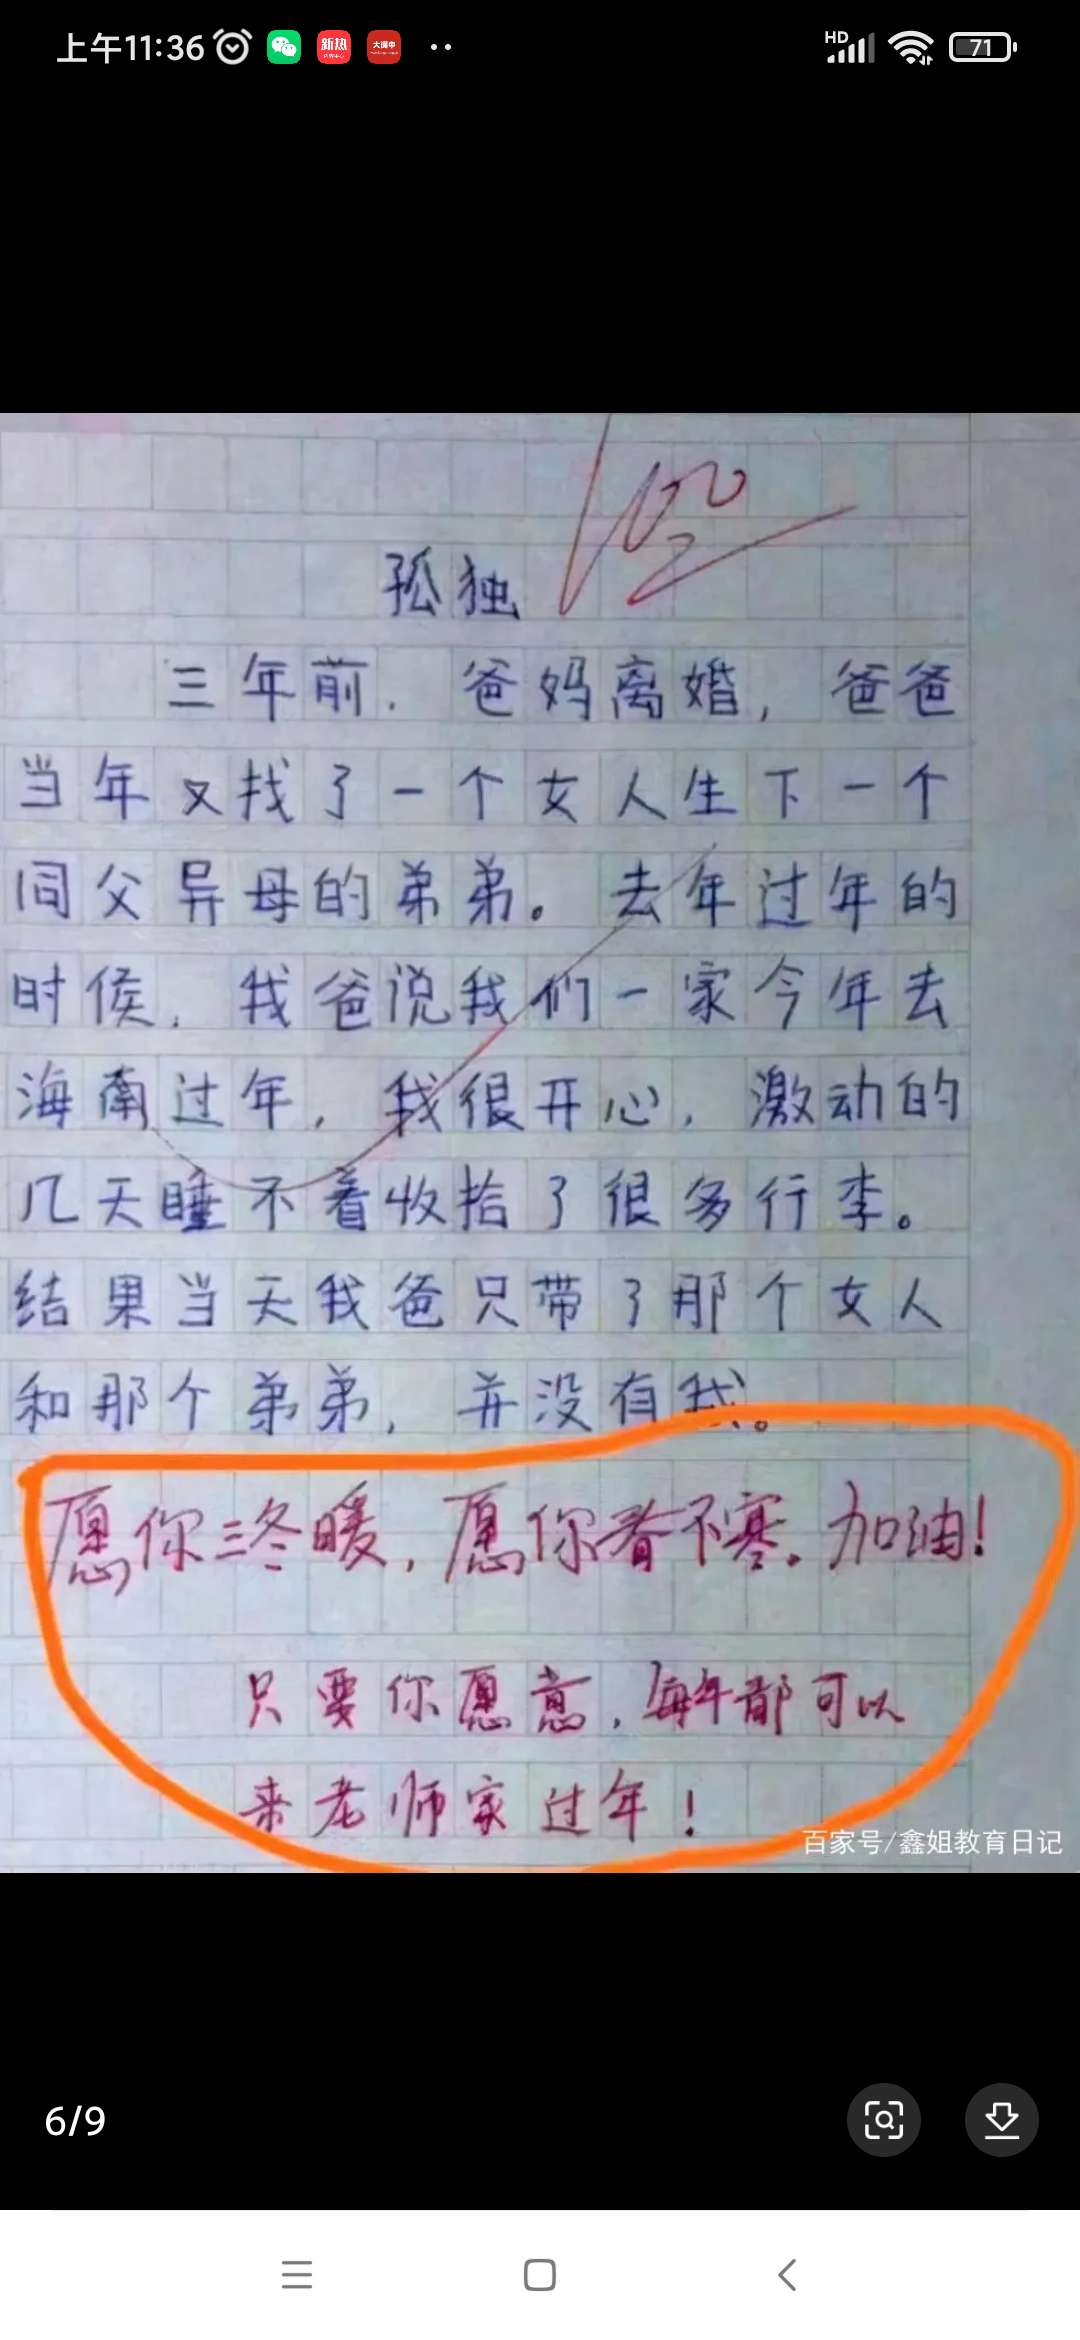 上午11:36
HD
71
100
孤独
三年前，爸妈离婚，爸爸
当年又找了一个女人生下一个
同父异母的弟弟。去年过年的
时候，我爸说我们一家今年去
海南过年，我很开心，激动的
几天睡不着收拾了很多行李。
结果当天我爸只带了那个女人
和那个弟弟，并没有我。
愿你三冬暖，愿你春不寒。加油！
只要你愿意，每年都可以
来老师家过年！
百家号/鑫姐教育日记
6/9